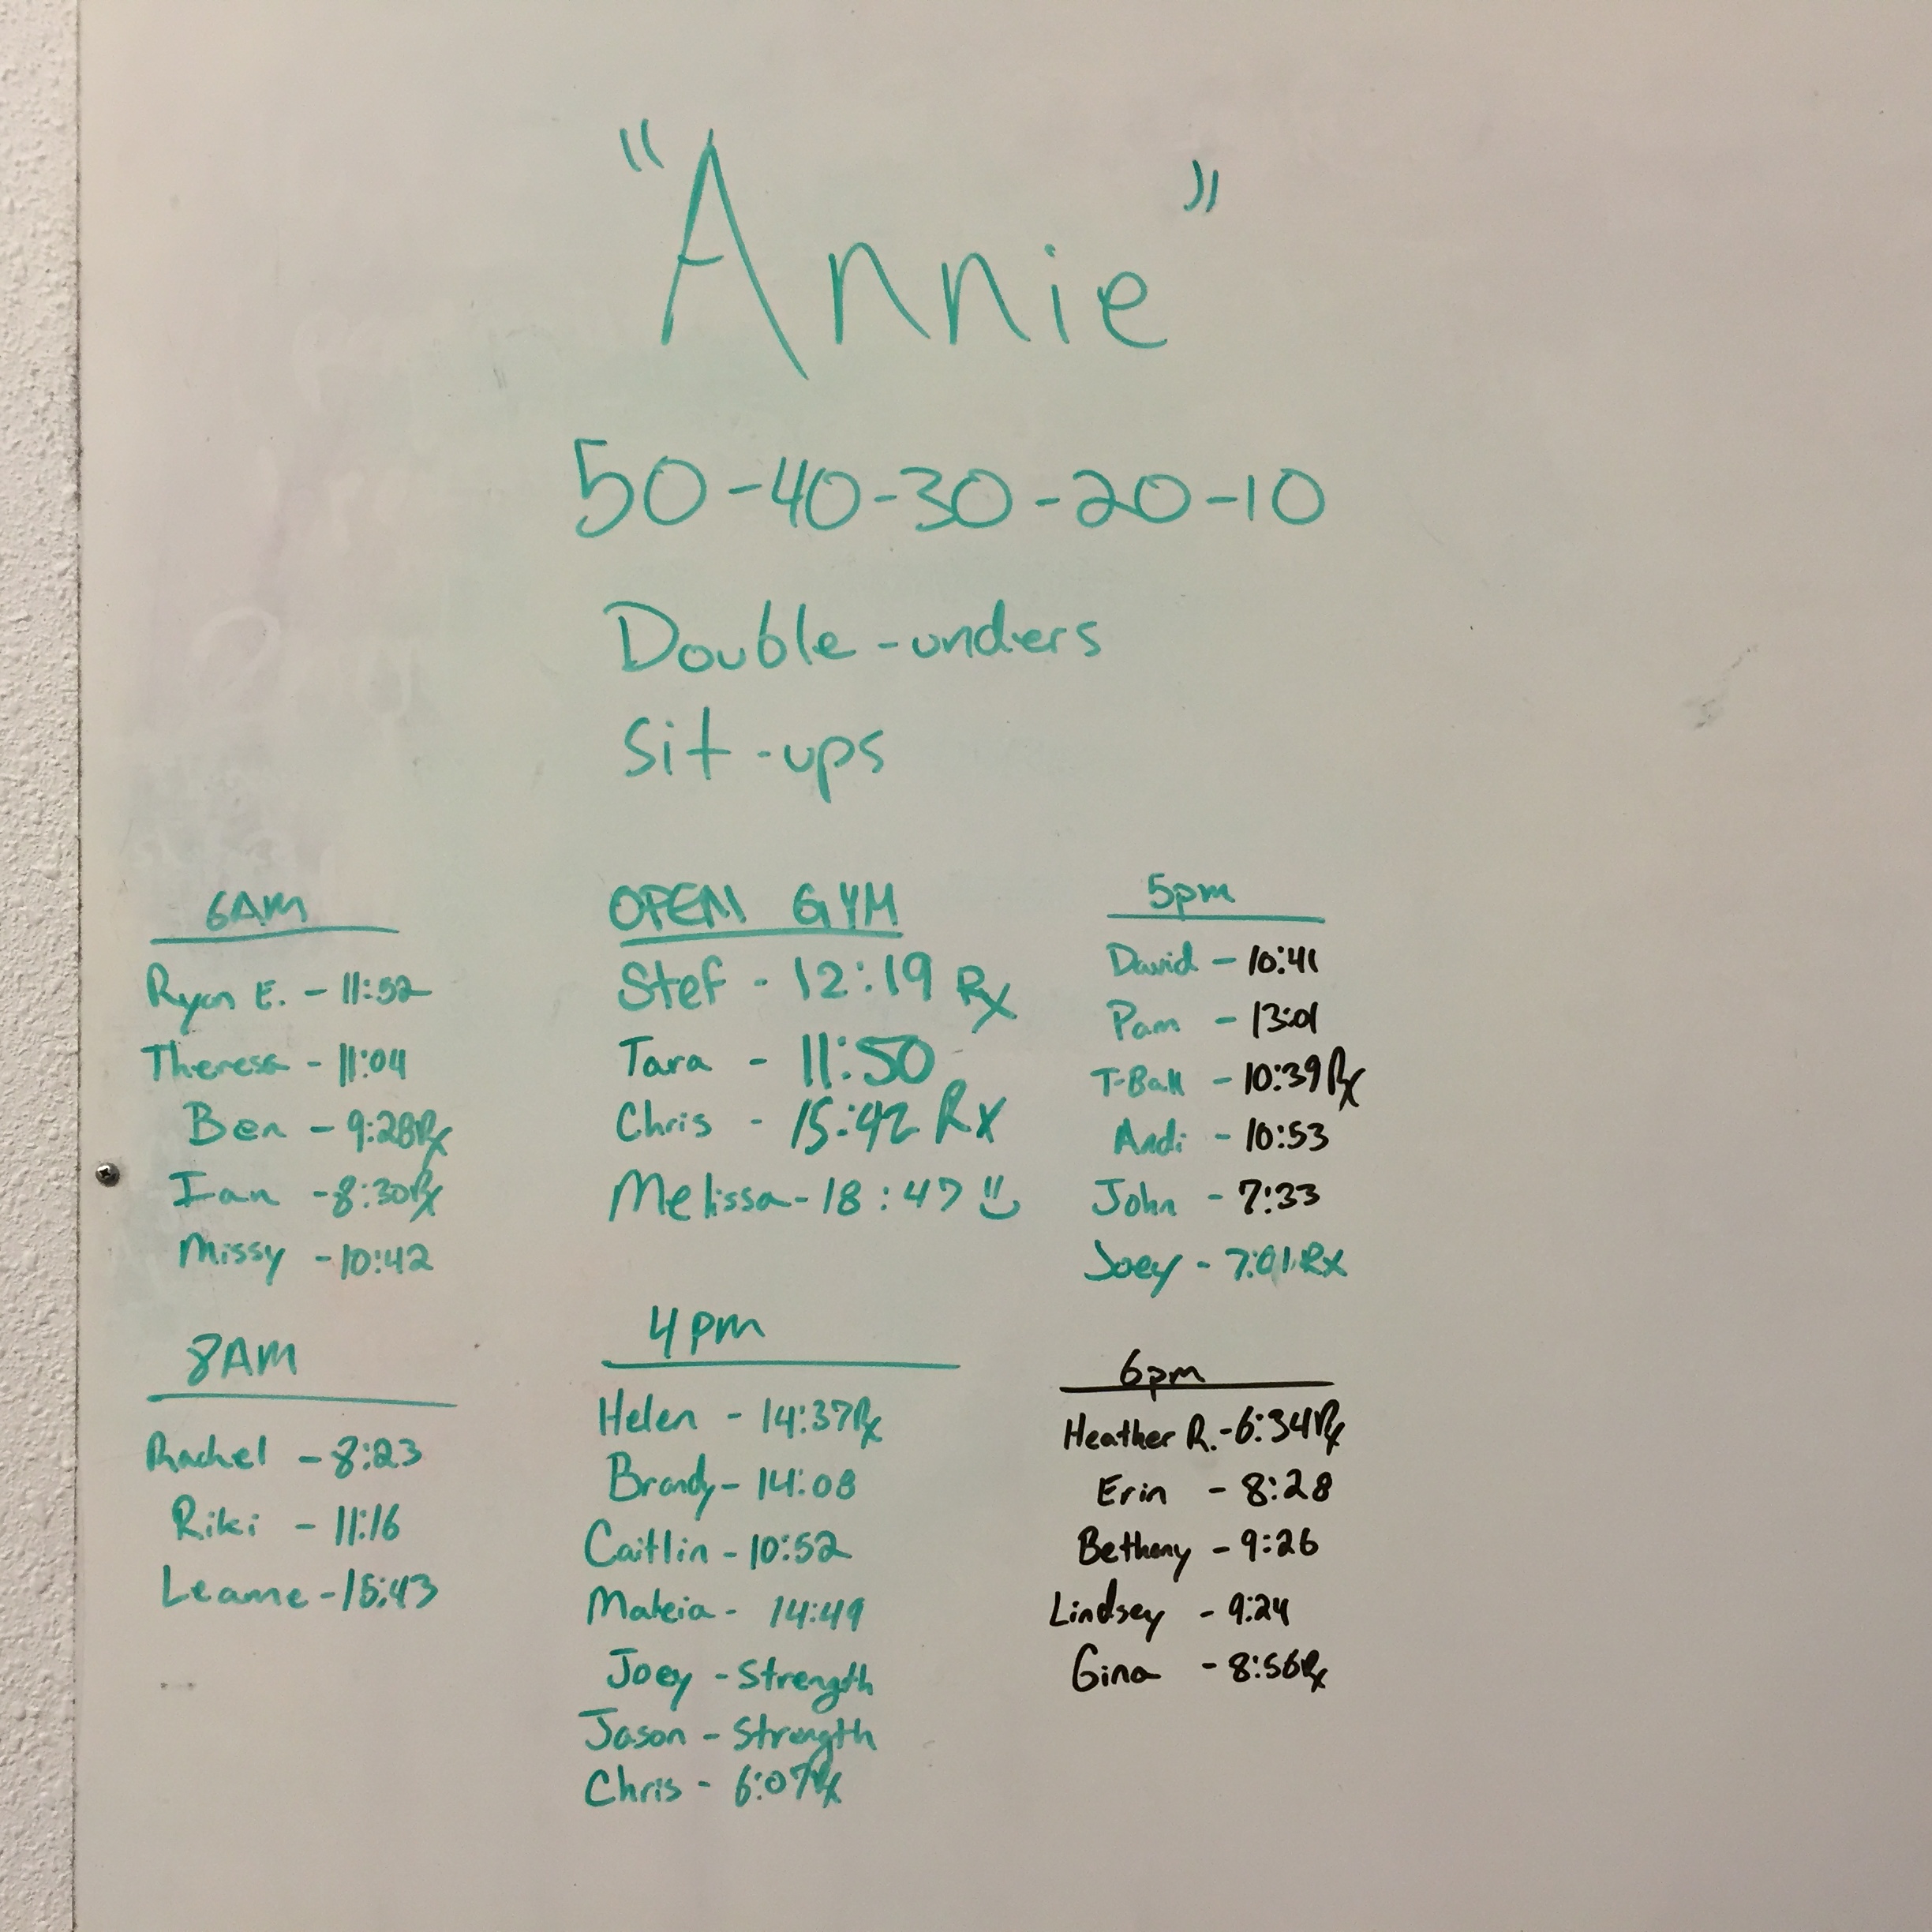 "Annie"
50-40-30-20-10
Double-unders
Sit-ups
6AM
Ryan E. - 11:52
Theresa - 11:04
Ben - 9:28 Rx
Ian - 8:30 Rx
Missy - 10:42
8AM
Rachel - 8:23
Riki - 11:16
Leanne - 15:43
OPEN GYM
Stef - 12:19 Rx
Tara - 11:50
Chris - 15:42 Rx
Melissa - 18:47
4pm
Helen - 14:37 Rx
Brandy - 14:08
Caitlin - 10:52
Makeia - 14:49
Joey - Strength
Jason - Strength
Chris - 6:07 Rx
5pm
David - 10:41
Pam - 13:01
T-Ball - 10:39 Rx
Andi - 10:53
John - 7:33
Joey - 7:01 Rx
6pm
Heather R. - 6:34 Rx
Erin - 8:28
Bethany - 9:26
Lindsey - 9:24
Gina - 8:56 Rx